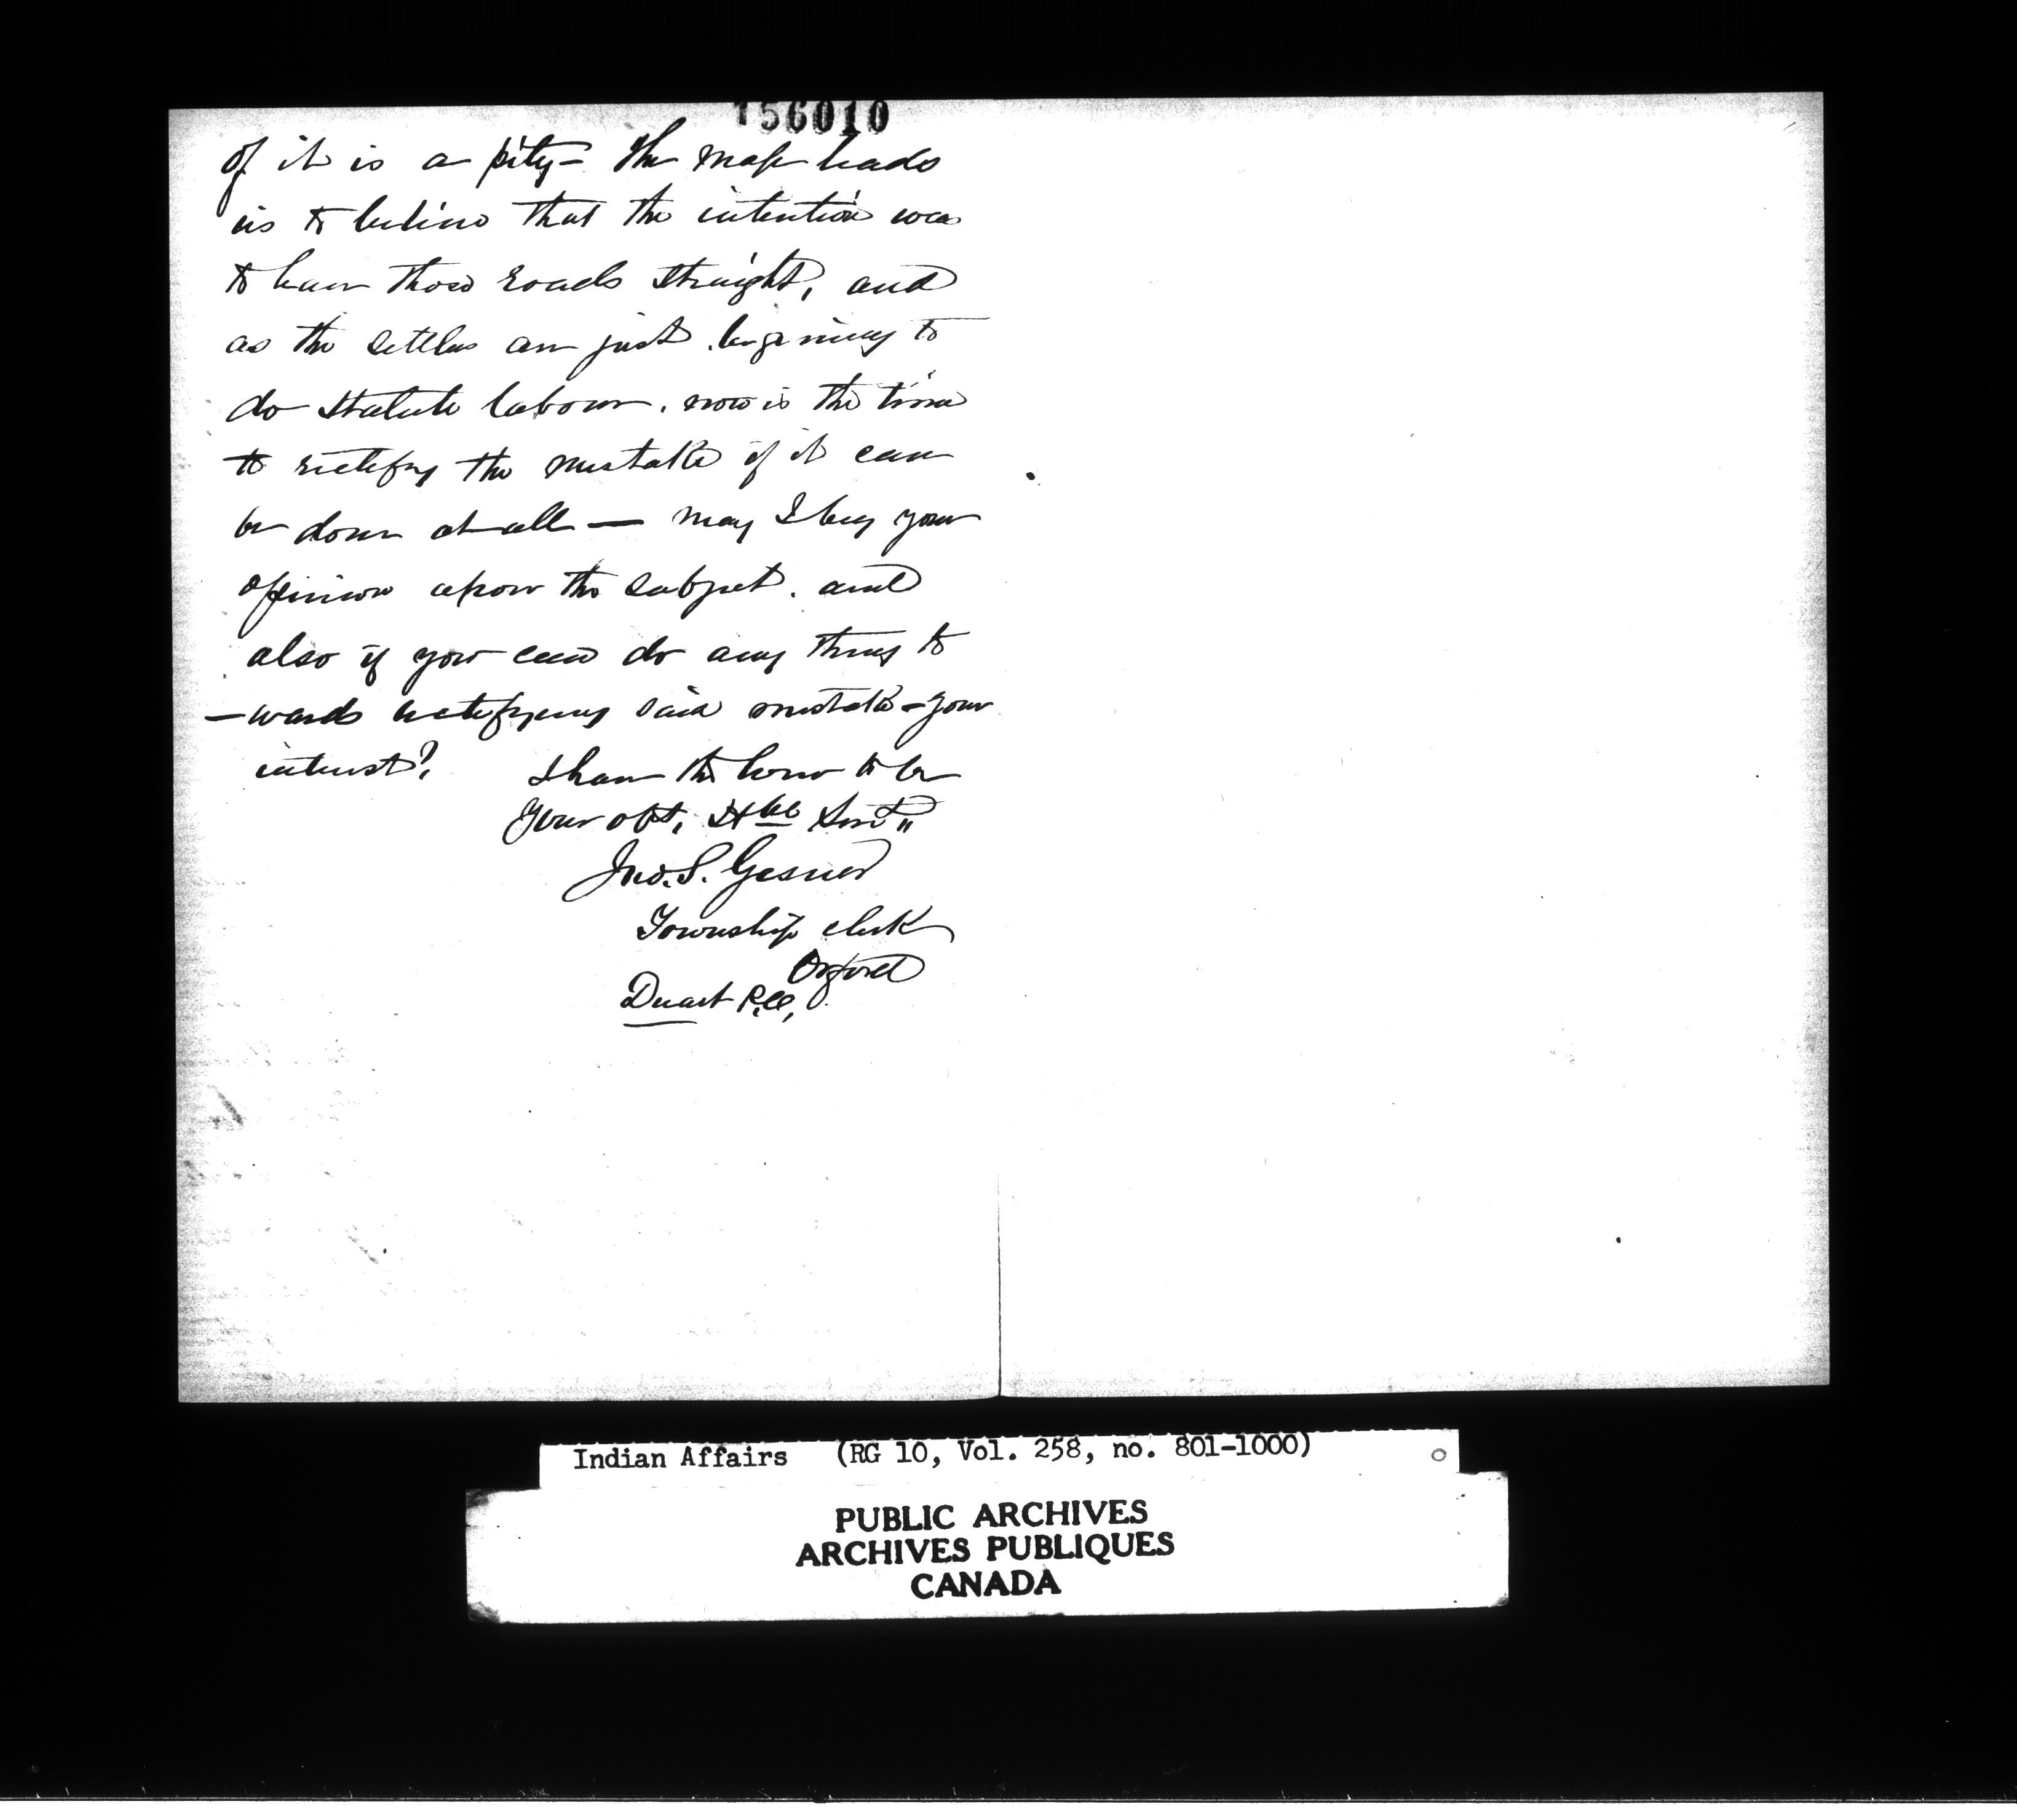 156010
of it is a pity - The map leads
us to believe that the intention was
to have those roads straight, and
as the settlers are just begining to
do statute labour, now is the time
to rectify the mistake if it can
be done at all — may I beg your
opinion upon the subject. and
also if you can do any thing to
-wards rectifying said mistake - your
interest?
I have the honor to be
Your obt, Hble Servt
Jno. S. Gesner
Township clerk
Orford
Duart P.O,
Indian Affairs (RG 10, Vol. 258, no. 801-1000)
PUBLIC ARCHIVES
ARCHIVES PUBLIQUES
CANADA